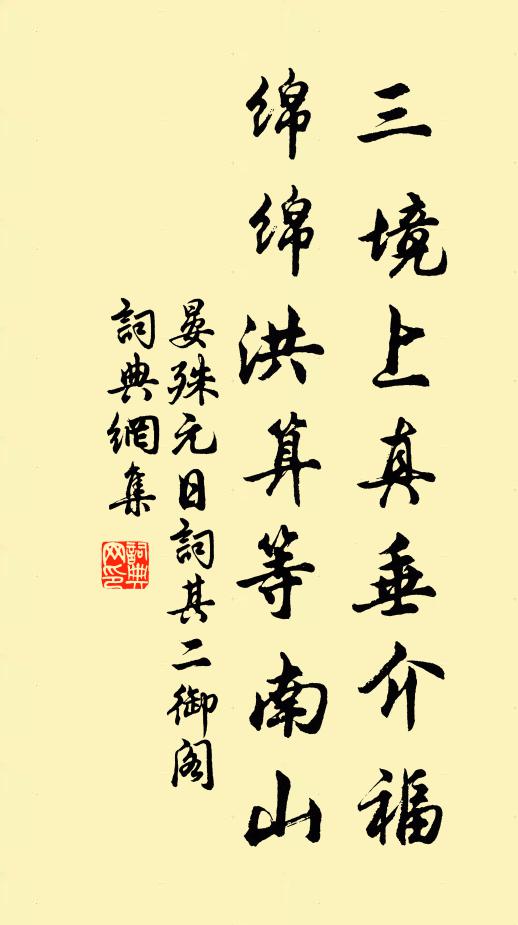 三境上真垂介福
绵绵洪算等南山
晏殊元日詞其二御阁
詞典網集
詞典网印